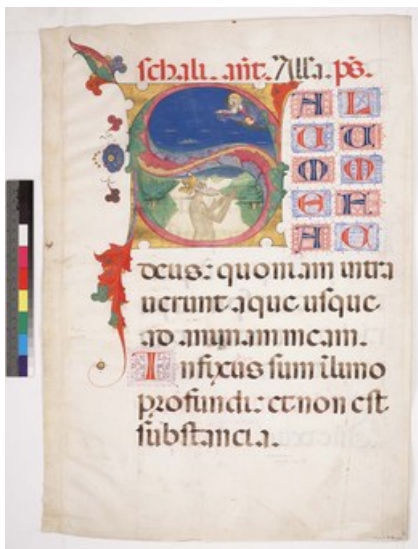 schali. añt. Alla. ps̃.
S A L
U U
M M
E F
A C
deus: quoniam intra
uerunt aque usque
ad animam meam.
Infixus sum i limo
profundi: et non est
substancia.